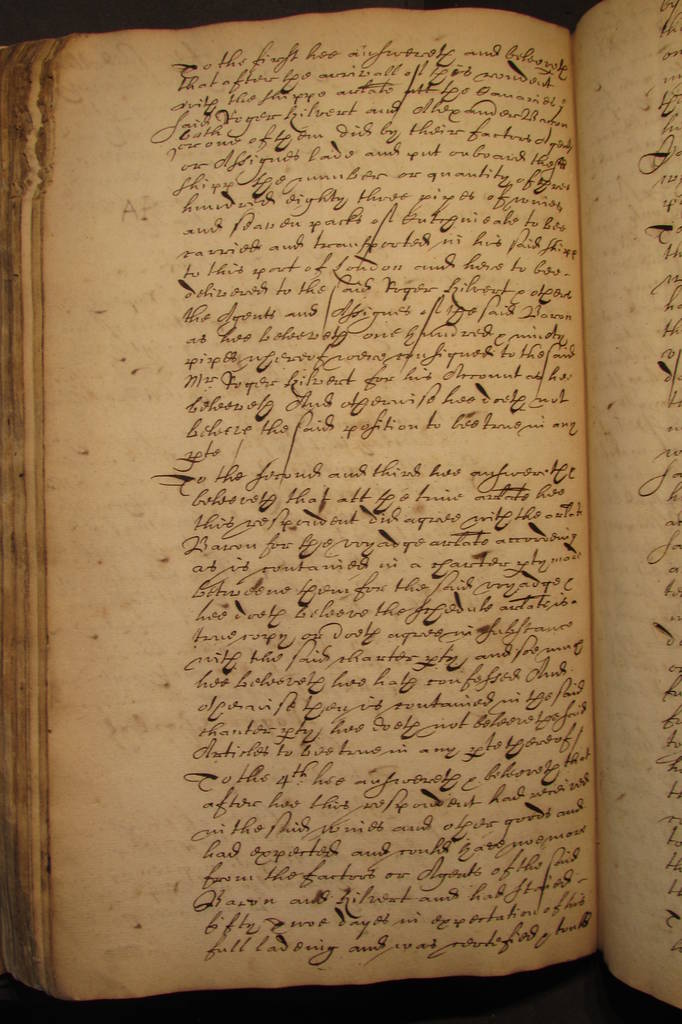 To the first hee answereth and beleeveth
that after the arrivall of this rondent
with the shippe arlate att the Canaries
said Roger Kilvert and Alexander Baron
both
or one of them did by their factors Agents
or Assignes lade and put onboard the sd
shipp the number or quantity of three
hundred eighty three pipes of wines
and seaven packs of Cutchineale to bee
carried and transported in his said shipp
to this port of London and here to bee
delivered to the said Roger Kilvert & others
the Agents and Assignes of the said Baron
as hee beleeveth one hundred & ninety
pipes whereof were consigned to the said
Mr Roger Kilvert for his Account as hee
beleeveth And otherwise hee doeth not
beleeve the said position to bee true in any
pte
To the second and third hee answereth &
beleeveth that att the time arlate hee
this respondent did agree with the arlate
Baron for the voyadge arlate according
as is contained in a charter pty made
betweene them for the said voyadge &
hee doeth beleeve the schedule arlate is a
true copy or doeth agree in substance
with the said charter pty, and soe much
hee beleeveth hee hath confessed And
otherwise then is contained in the said
charter pty, hee doeth not beleeve the said
Articles to bee true in any pte thereof
To the 4th hee answereth & beleeveth that
after hee this respondent had received
in the said wines and other goods and
had expected and could have noe more
from the factors or Agents of the said
Baron and Kilvert and had staied
fifty twoe dayes in expectation of his
full ladeing and was certefied &